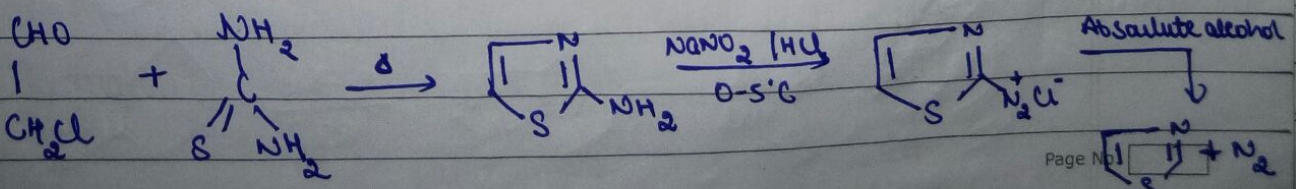 CHO
|
CH2Cl
+
NH2
C
S NH2
Δ
N
S NH2
NaNO2 /HCl
0-5°C
N
S N2+ Cl-
Absaulute alcohol
N
S
+ N2
Page No